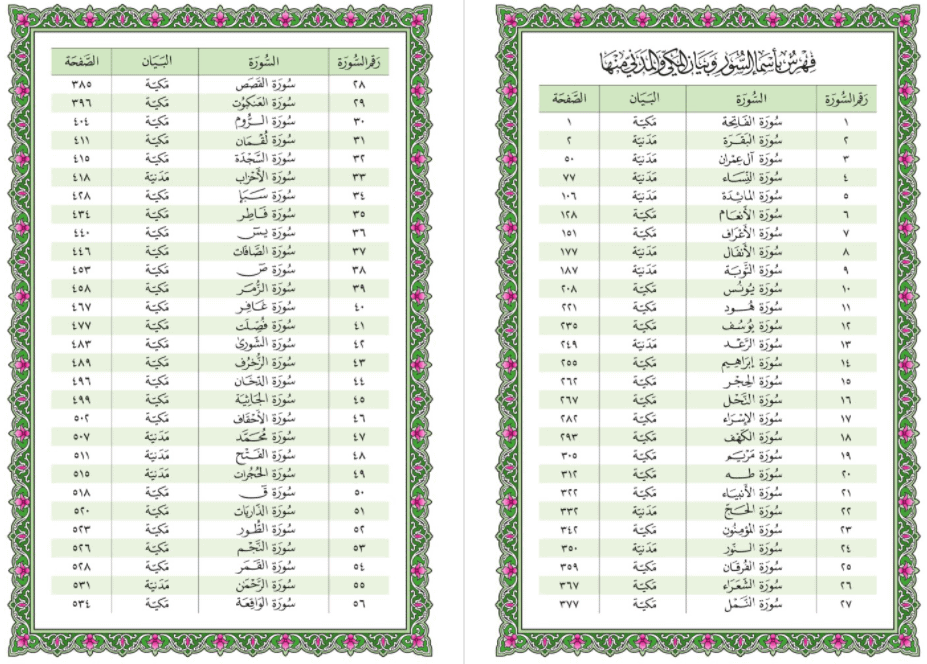 فهرس بأسماء السور وبيان المكي والمدني منها
رقم السورة السورة البيان الصفحة
١ سُورَة الفَاتِحَة مَكيّة ١
٢ سُورَة البَقَرَة مَدَنيّة ٢
٣ سُورَة آل عِمْرَان مَدَنيّة ٥٠
٤ سُورَة النِّسَاء مَدَنيّة ٧٧
٥ سُورَة المَائِدَة مَدَنيّة ١٠٦
٦ سُورَة الأَنعَام مَكيّة ١٢٨
٧ سُورَة الأَعْرَاف مَكيّة ١٥١
٨ سُورَة الأَنفَال مَدَنيّة ١٧٧
٩ سُورَة التَّوبَة مَدَنيّة ١٨٧
١٠ سُورَة يُونُس مَكيّة ٢٠٨
١١ سُورَة هُود مَكيّة ٢٢١
١٢ سُورَة يُوسُف مَكيّة ٢٣٥
١٣ سُورَة الرَّعْد مَدَنيّة ٢٤٩
١٤ سُورَة إبراهِيم مَكيّة ٢٥٥
١٥ سُورَة الحِجْر مَكيّة ٢٦٢
١٦ سُورَة النَّحْل مَكيّة ٢٦٧
١٧ سُورَة الإِسْرَاء مَكيّة ٢٨٢
١٨ سُورَة الكَهْف مَكيّة ٢٩٣
١٩ سُورَة مَرْيَم مَكيّة ٣٠٥
٢٠ سُورَة طه مَكيّة ٣١٢
٢١ سُورَة الأَنبِيَاء مَكيّة ٣٢٢
٢٢ سُورَة الحَجّ مَدَنيّة ٣٣٢
٢٣ سُورَة المؤمِنُون مَكيّة ٣٤٢
٢٤ سُورَة النّور مَدَنيّة ٣٥٠
٢٥ سُورَة الفُرقَان مَكيّة ٣٥٩
٢٦ سُورَة الشُّعَرَاء مَكيّة ٣٦٧
٢٧ سُورَة النَّمْل مَكيّة ٣٧٧
رقم السورة السورة البيان الصفحة
٢٨ سُورَة القَصَص مَكيّة ٣٨٥
٢٩ سُورَة العَنكبُوت مَكيّة ٣٩٦
٣٠ سُورَة الرُّوم مَكيّة ٤٠٤
٣١ سُورَة لُقْمَان مَكيّة ٤١١
٣٢ سُورَة السَّجْدَة مَكيّة ٤١٥
٣٣ سُورَة الأَحْزَاب مَدَنيّة ٤١٨
٣٤ سُورَة سَبَإ مَكيّة ٤٢٨
٣٥ سُورَة فَاطِر مَكيّة ٤٣٤
٣٦ سُورَة يسٓ مَكيّة ٤٤٠
٣٧ سُورَة الصَّافَات مَكيّة ٤٤٦
٣٨ سُورَة صٓ مَكيّة ٤٥٣
٣٩ سُورَة الزُّمَر مَكيّة ٤٥٨
٤٠ سُورَة غَافِر مَكيّة ٤٦٧
٤١ سُورَة فُصِّلَت مَكيّة ٤٧٧
٤٢ سُورَة الشّورىٰ مَكيّة ٤٨٣
٤٣ سُورَة الزُّخرُف مَكيّة ٤٨٩
٤٤ سُورَة الدّخَان مَكيّة ٤٩٦
٤٥ سُورَة الجَاثِيَة مَكيّة ٤٩٩
٤٦ سُورَة الأَحْقَاف مَكيّة ٥٠٢
٤٧ سُورَة مُحَمَّد مَدَنيّة ٥٠٧
٤٨ سُورَة الفَتْح مَدَنيّة ٥١١
٤٩ سُورَة الحُجُرات مَدَنيّة ٥١٥
٥٠ سُورَة قٓ مَكيّة ٥١٨
٥١ سُورَة الذّاريَات مَكيّة ٥٢٠
٥٢ سُورَة الطُّور مَكيّة ٥٢٣
٥٣ سُورَة النَّجْم مَكيّة ٥٢٦
٥٤ سُورَة القَمَر مَكيّة ٥٢٨
٥٥ سُورَة الرَّحْمٰن مَدَنيّة ٥٣١
٥٦ سُورَة الوَاقِعَة مَكيّة ٥٣٤